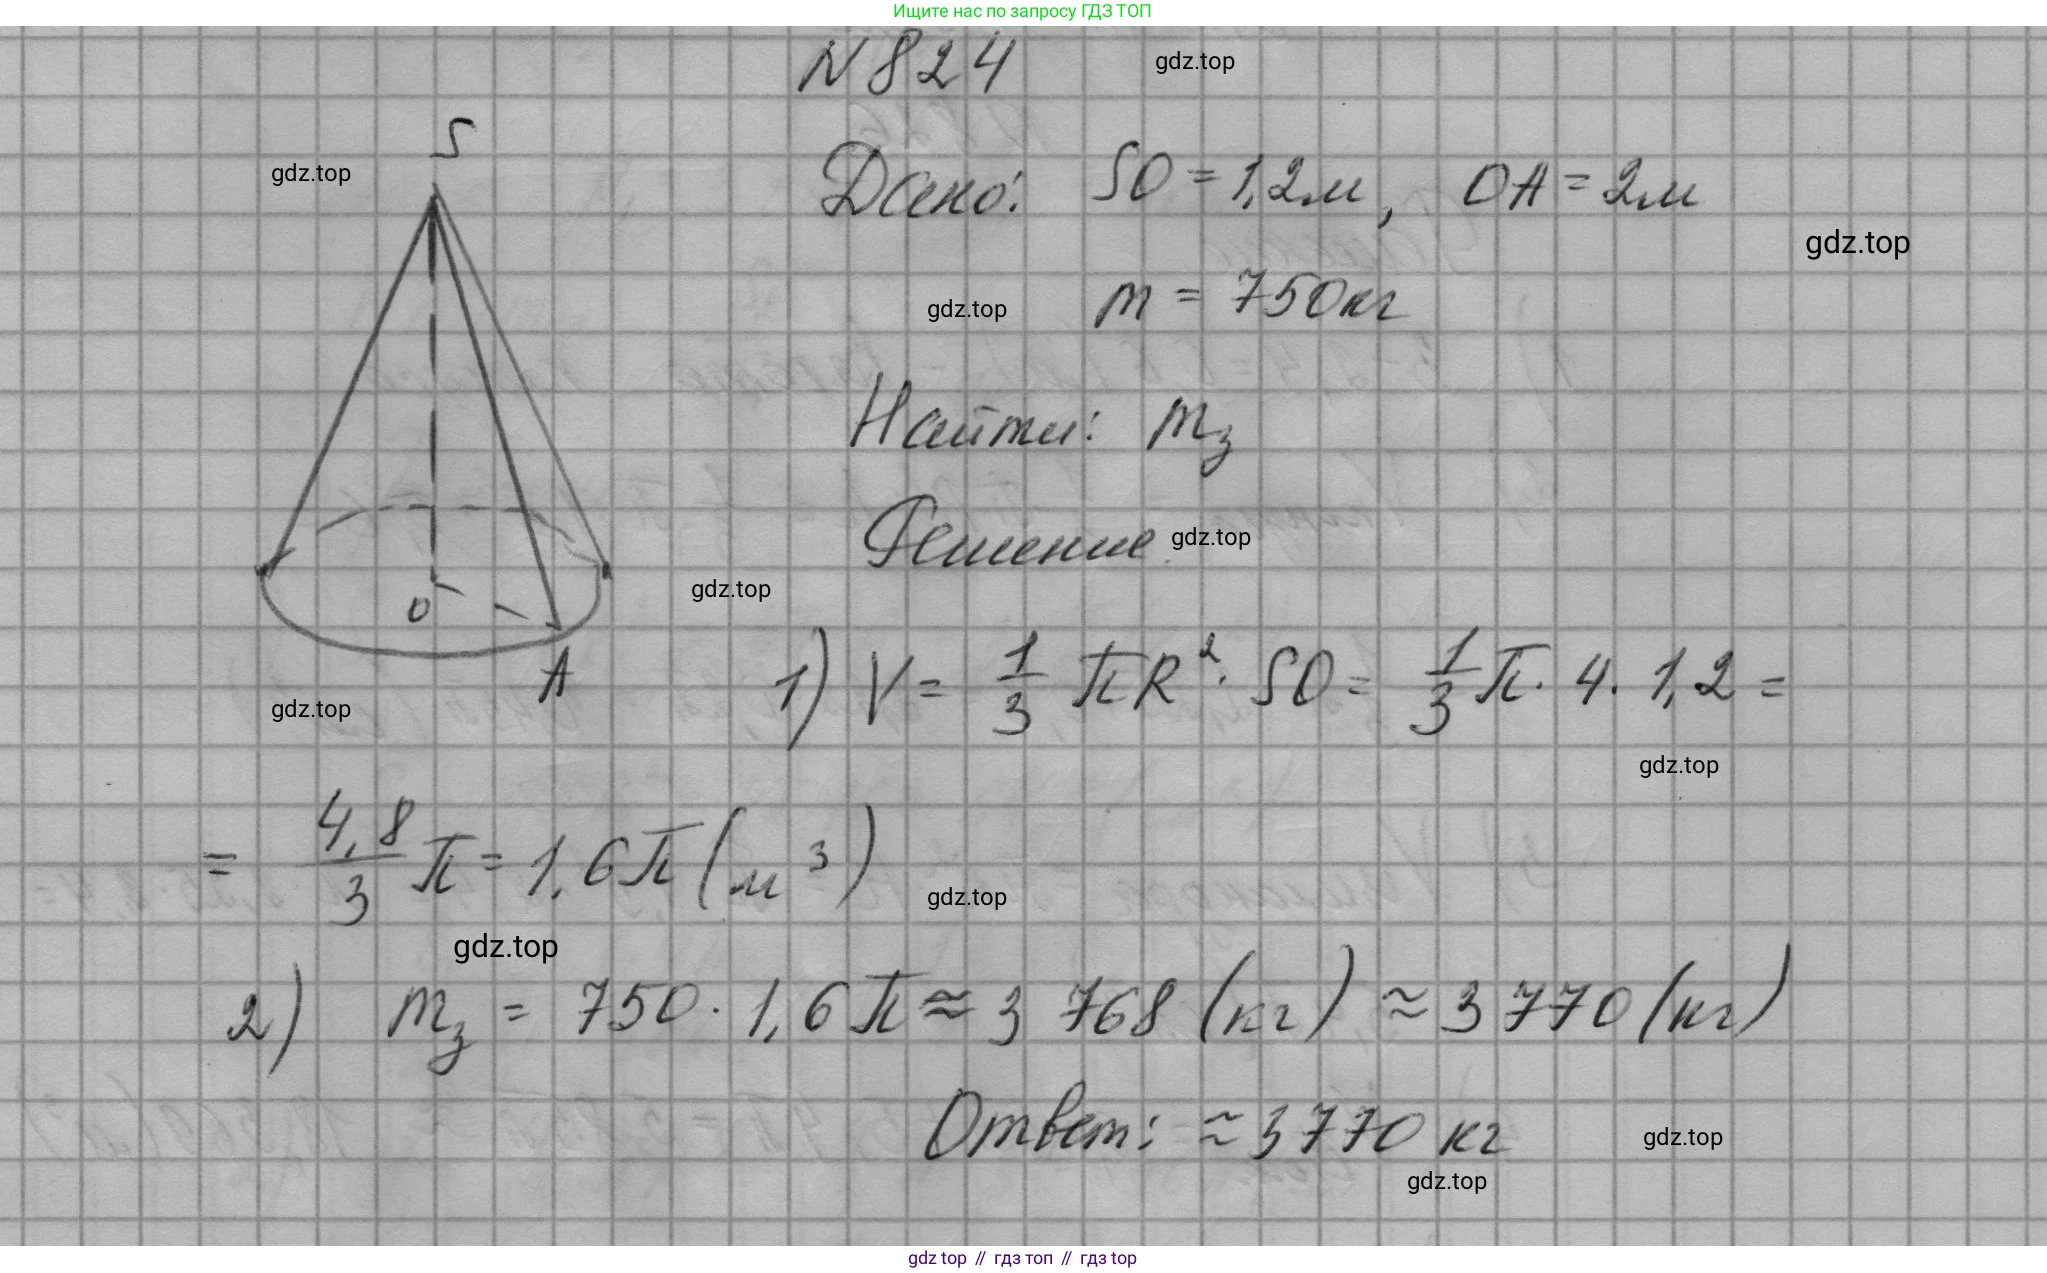 Ищите нас по запросу ГДЗ ТОП
N 824
gdz.top
S
gdz.top
Дано: SO = 1,2м, OA = 2м
gdz.top
m = 750кг
gdz.top
Найти: mз
Решение
gdz.top
gdz.top
O
A
gdz.top
1) V = 1/3 πR²· SO = 1/3 π· 4 · 1,2 =
gdz.top
= 4,8/3 π = 1,6π (м³)
gdz.top
gdz.top
2) mз = 750 · 1,6π ≈ 3 768 (кг) ≈ 3 770 (кг)
Ответ: ≈ 3 770 кг
gdz.top
gdz.top
gdz top // гдз топ // гдз top